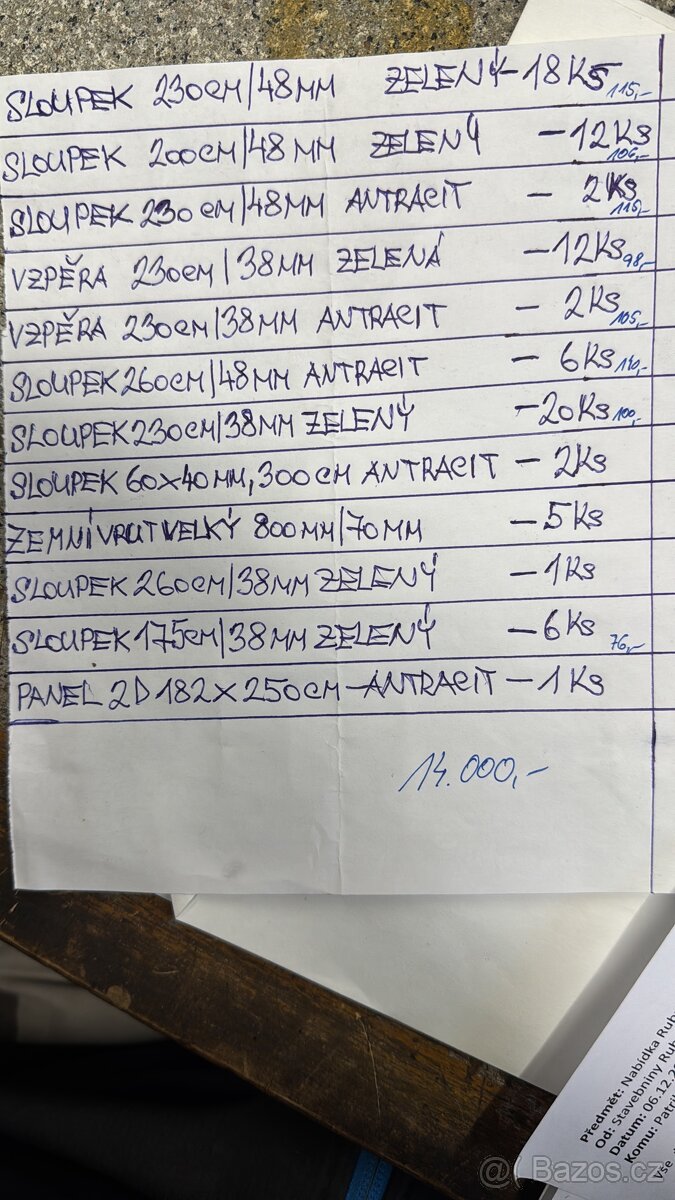 SLOUPEK 230CM/48MM ZELENÝ - 18KS 115,-
SLOUPEK 200CM/48MM ZELENÝ - 12KS 106,-
SLOUPEK 230CM/48MM ANTRACIT - 2KS 115,-
VZPĚRA 230CM/38MM ZELENÁ - 12KS 98,-
VZPĚRA 230CM/38MM ANTRACIT - 2KS 105,-
SLOUPEK 260CM/48MM ANTRACIT - 6KS 140,-
SLOUPEK 230CM/38MM ZELENÝ - 20KS 100,-
SLOUPEK 60x40MM, 300CM ANTRACIT - 2KS
ZEMNÍ VRUT VELKÝ 800MM/70MM - 5KS
SLOUPEK 260CM/38MM ZELENÝ - 1KS
SLOUPEK 175CM/38MM ZELENÝ - 6KS 76,-
PANEL 2D 182x250CM - ANTRACIT - 1KS
14.000,-
Předmět: Nabídka Rub
Od: Stavebniny Rub
Datum: 06.12.2
Komu: Patri
Vše
@ Bazos.cz